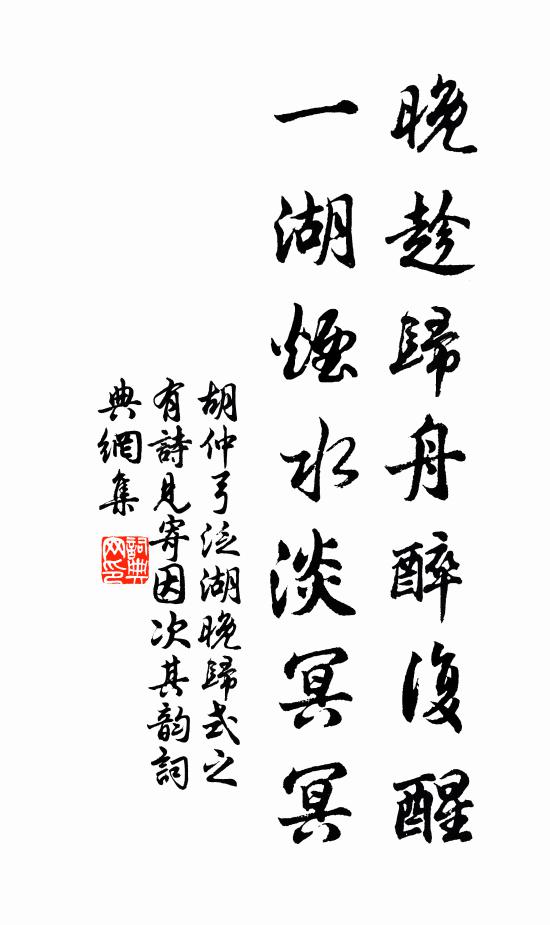 晚趁歸舟醉復醒
一湖煙水淡冥冥
胡仲弓泛湖晚歸式之
有詩見寄因次其韵詞
典網集
詞典
网印